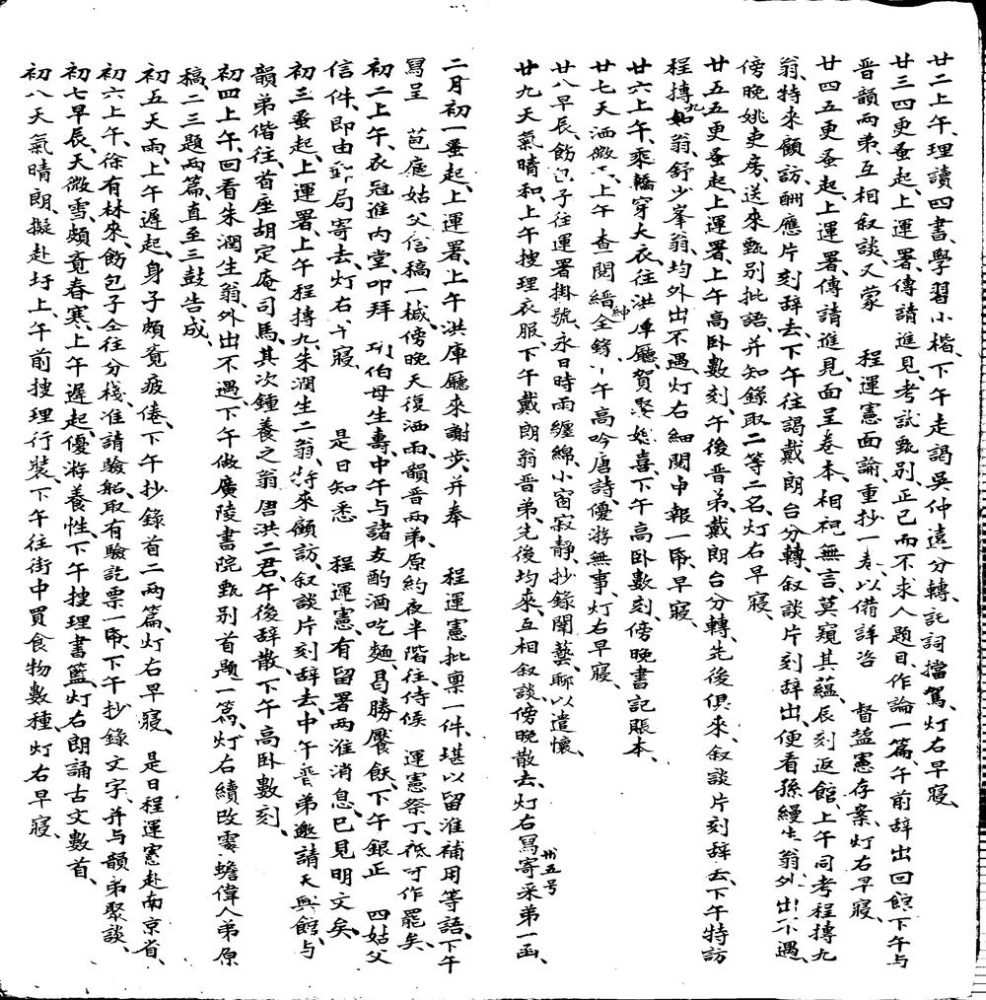 廿二上午、理讀四書、學習小楷、下午走謁吳仲遠分轉、託詞擋駕、灯右早寢、
廿三四更蚤起、上運署、傳請進見、考試甄別、正己而不求人題目、作論一篇、午前辞出回館、下午与
晋韻兩弟、互相叙談、又蒙 程運憲面諭、重抄一卷、以備詳咨 督鹽憲存案、灯右早寢、
廿四五更蚤起、上運署、傳請進見、面呈卷本、相視無言、莫窺其蘊、辰刻返館、上午同考程摶九
翁、特來顧訪、酬應片刻辞去、下午往謁戴朗台分轉、叙談片刻辞出、便看孫縵生翁、外出不遇、
傍晚姚吏房、送來甄別批語、并知錄取二等二名、灯右早寢、
廿五五更蚤起、上運署、上午高卧數刻、午後晋弟、戴朗台分轉、先後俱來、叙談片刻辞去、下午特訪
程摶九翁、舒少峯翁、均外出不遇、灯右細閱申報一帋、早寢、
廿六上午、乘轎穿大衣、往洪庫廳賀娶媳喜、下午高卧數刻、傍晚書記賬本、
廿七天洒微、上午查閱縉紳全錄、下午高吟唐詩、優游無事、灯右早寢、
廿八早辰、飭包子往運署掛號、永日時雨纏綿、小窗寂靜、抄錄闈藝、聊以遣懷、
廿九天氣晴和、上午搜理衣服、下午戴朗翁晋弟、先後均來、互相叙談、傍晚散去、灯右寫寄采弟一函、
卅五号
二月初一蚤起、上運署、上午洪庫廳來謝步、并奉 程運憲批稟一件、堪以留淮補用等語、下午
寫呈 苞庭姑父信稿一椷、傍晚天復洒雨、韻晋兩弟、原約夜半階往、侍候 運憲祭丁、祗可作罷矣、
初二上午、衣冠進內堂叩拜 伯母生壽、中午与諸友酌酒吃麵、曷勝饜飫、下午銀正 四姑父
信件、即由郵局寄去、灯右早寢 是日知悉 程運憲、有留署兩淮消息、已見明文矣、
初三蚤起、上運署、上午程摶九、朱潤生二翁、特來顧訪、叙談片刻辞去、中午晋弟邀請天興館、与
韻弟偕往、首座胡定庵司馬、其次鍾養之翁、唐洪二君、午後辞散、下午高卧數刻、
初四上午、回看朱潤生翁、外出不遇、下午做廣陵書院甄別首題一篇、灯右續改雲蟾偉人弟原
稿、二三題兩篇、直至三鼓告成、
初五天雨、上午遲起、身子頗覺疲倦、下午抄錄首二兩篇、灯右早寢、 是日程運憲赴南京省、
初六上午、徐有林來、飭包子仝往分棧、准請驗船、取有驗訖票一帋、下午抄錄文字、并与韻弟聚談、
初七早辰、天微雪、頗覺春寒、上午遲起、優游養性、下午搜理書籃、灯右朗誦古文數首、
初八天氣晴朗、擬赴圩上、午前搜理行裝、下午往街中買食物數種、灯右早寢、